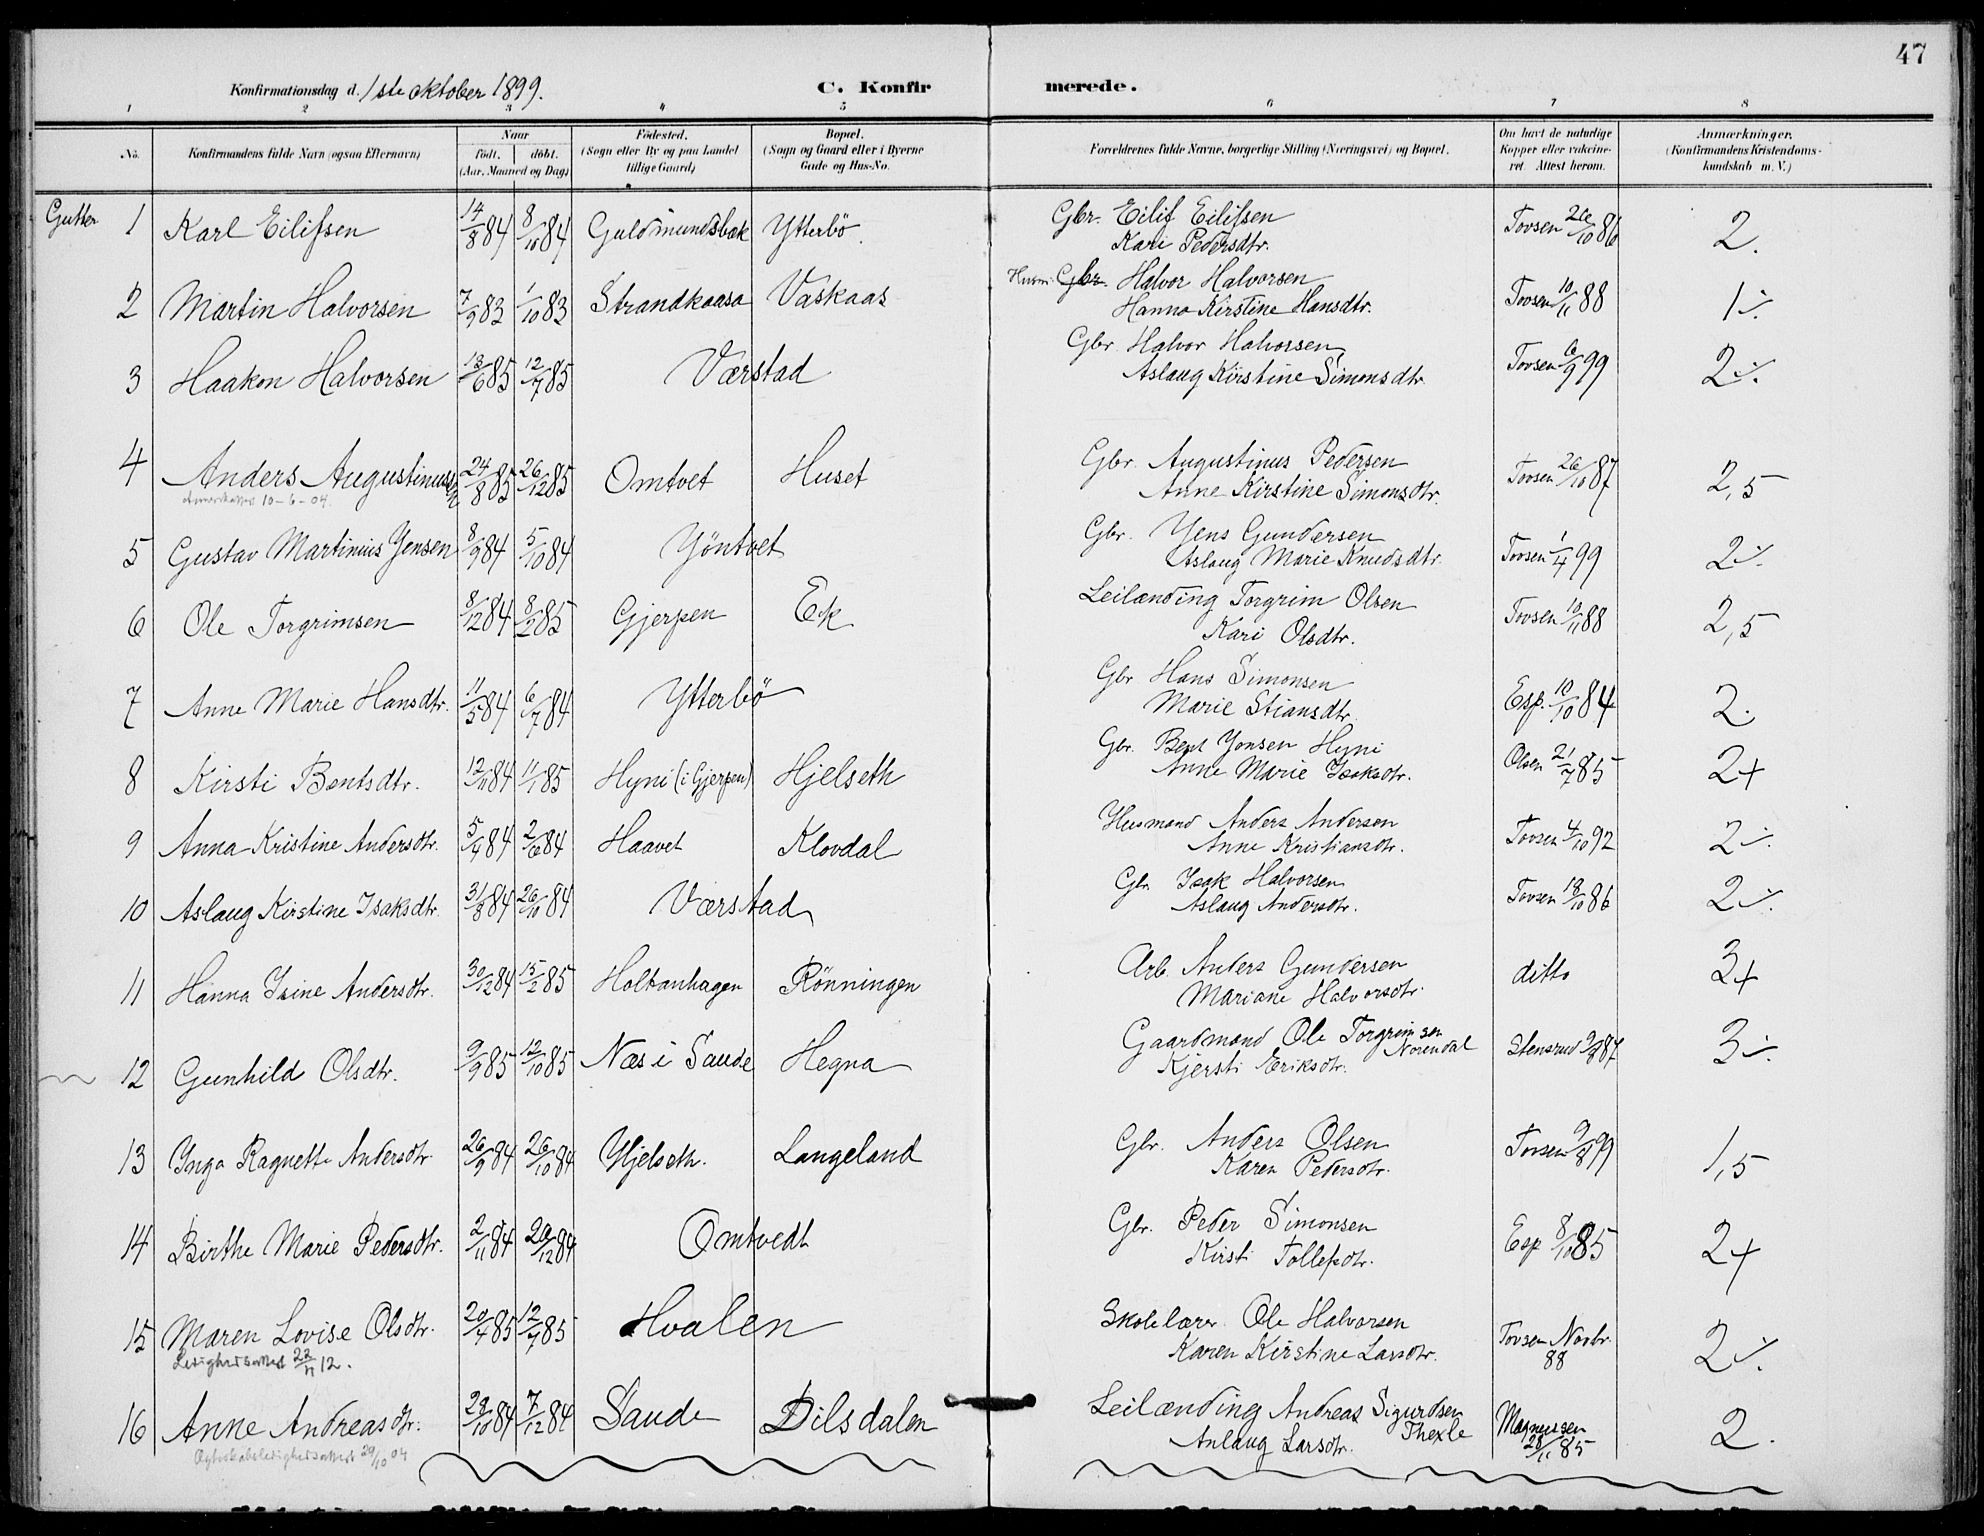 47
Konfirmationsdag d. 1ste oktober 1899. C. Konfir merede.
1 2 3 4 5 6 7 8
No. Konfirmandens fulde Navn (ogsaa Efternavn) Naar født. døbt. (Aar, Maaned og Dag) Fødested. (Sogn eller By og paa Landet tillige Gaard) Bopæl. (Sogn og Gaard eller i Byerne Gade og Hus-No. Forældrenes fulde Navne, borgerlige Stilling (Næringsvei) og Bopæl. Om havt de naturlige Kopper eller vakcineret. Attest herom. Anmærkninger. (Konfirmandens Kristendomskundskab m. V.)
Gutter 1 Karl Eilifsen 14/8 84 8/10 84 Guldmundsbæk Ytterbö. Gbr. Eilif Eilifsen Tovsen 26/10 86 2.
Kari Pedersdtr.
2 Martin Halvorsen 7/9 83 1/10 83 Strandkaasa Vaskaas Husm. Gbr. Halvor Halvorsen Tovsen 10/11 88 1 ÷.
Hanna Kirstine Hansdtr.
3 Haakon Halvorsen 13/6 85 12/7 85 Værstad Gbr. Halvor Halvorsen Tovsen 6/9 99 2 ÷.
Aslaug Kirstine Simonsdtr.
4 Anders Augustinussen 24/8 85 26/12 85 Omtvet Huset Gbr. Augustinus Pedersen Tovsen 26/10 87 2,5
Amerikattest 10-6-04. Anne Kirstine Simonsdtr.
5 Gustav Martinius Jensen 8/9 84 5/10 84 Yöntvet Gbr. Jens Gundersen Tovsen 1/4 99 2 ÷.
Aslaug Marie Knudsdtr.
6 Ole Torgrimsen 8/12 84 8/2 85 Gjerpen Ek Leilænding Torgrim Olsen Tovsen 10/11 88 2,5
Kari Olsdtr.
7 Anne Marie Hansdtr. 11/5 84 6/7 84 Ytterbö Gbr. Hans Simonsen Esp. 10/10 84 2.
Marie Stiansdtr.
8 Kirsti Bentsdtr. 12/11 84 11/1 85 Hyni (i Gjerpen) Hjelseth Gbr. Bent Jonsen Hyni Olsen 21/7 85 2+
Anne Marie Isaksdtr.
9 Anna Kristine Andersdtr. 5/4 84 2/6 84 Haavet Klovdal Husmand Anders Andersen Tovsen 4/10 92 2 ÷.
Anne Kristiansdtr.
10 Aslaug Kirstine Isaksdtr. 31/8 84 26/10 84 Værstad Gbr. Isak Halvorsen Tovsen 18/10 86 2 ÷.
Aslaug Andersdtr.
11 Hanna Isine Andersdtr. 30/12 84 15/2 85 Holtanhagen Rönningen Arb. Anders Gundersen ditto 3+
Mariane Halvorsdtr.
12 Gunhild Olsdtr. 9/9 85 12/10 85 Næs i Saude Hegna Gaardmand Ole Torgrimsen Norendal Stensrud 9/9 87 3 ÷.
Kjersti Eriksdtr.
13 Inga Ragnette Andersdtr. 26/9 84 26/10 84 Hjelseth. Langeland Gbr. Anders Olsen Tovsen 9/8 99 1,5
Karen Pedersdtr.
14 Birthe Marie Pedersdtr. 2/11 84 29/12 84 Omtvedt Gbr. Peder Simonsen Esp 8/10 85 2+
Kirsti Tollefsdtr.
15 Maren Lovise Olsdtr. 20/4 85 12/7 85 Hvalen Skolelærer Ole Halvorsen Tovsen Novbr. 88 2 ÷.
Ledighedsattest 22/11 12. Karen Kirstine Larsdtr.
16 Anne Andreasdtr. 29/10 84 7/12 84 Saude Dilsdalen Leilænding Andreas Sigurdsen Thexle Magnussen 28/11 85 2.
Ægteskabsledighedsattest 29/10 04 Anlaug Larsdtr.